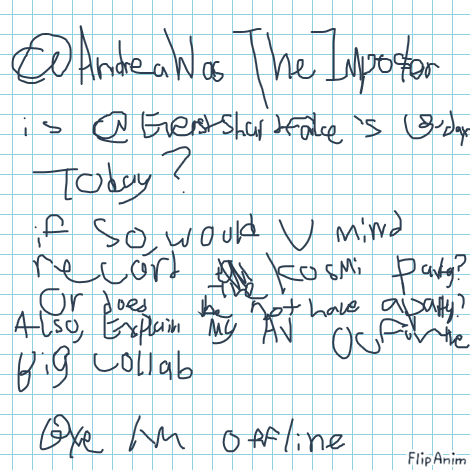 @AndreaWasTheImpostor
is @EverestSharkFake's B-day
Today?
if so, would U mind
record the Kosmi Party?
Or does he not have a party?
Also, Explain My AV OC Fun
Big Collab
I'm offline
FlipAnim